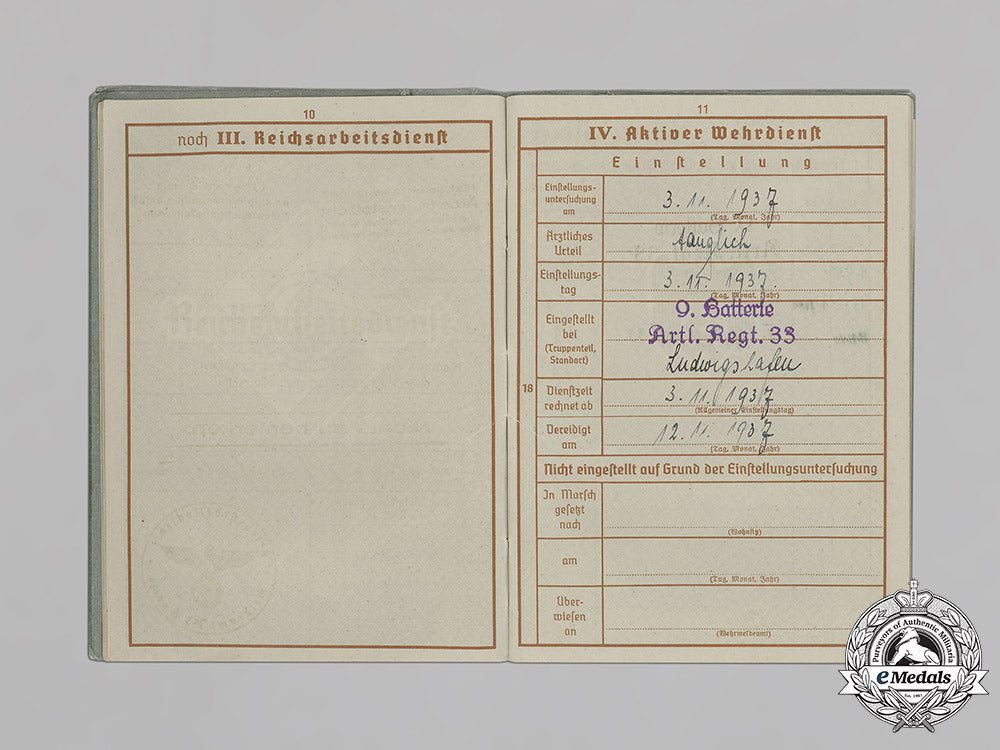 10
noch III. Reichsarbeitsdienst
11
IV. Aktiver Wehrdienst
Einstellung
Einstellungs-
untersuchung
am
3. 11. 1937
(Tag, Monat, Jahr)
Ärztliches
Urteil
tauglich
Einstellungs-
tag
3. 11. 1937.
(Tag, Monat, Jahr)
Eingestellt
bei
(Truppenteil,
Standort)
9. Batterie
Artl. Regt. 33
Ludwigshafen
18
Dienstzeit
rechnet ab
3. 11. 1937
(Allgemeiner Einstellungstag)
Vereidigt
am
12. 11. 1937
(Tag, Monat, Jahr)
Nicht eingestellt auf Grund der Einstellungsuntersuchung
In Marsch
gesetzt
nach
(Wohnsitz)
am
(Tag, Monat, Jahr)
Über-
wiesen
an
(Wehrmeldeamt)
Purveyors of Authentic Militaria
eMedals